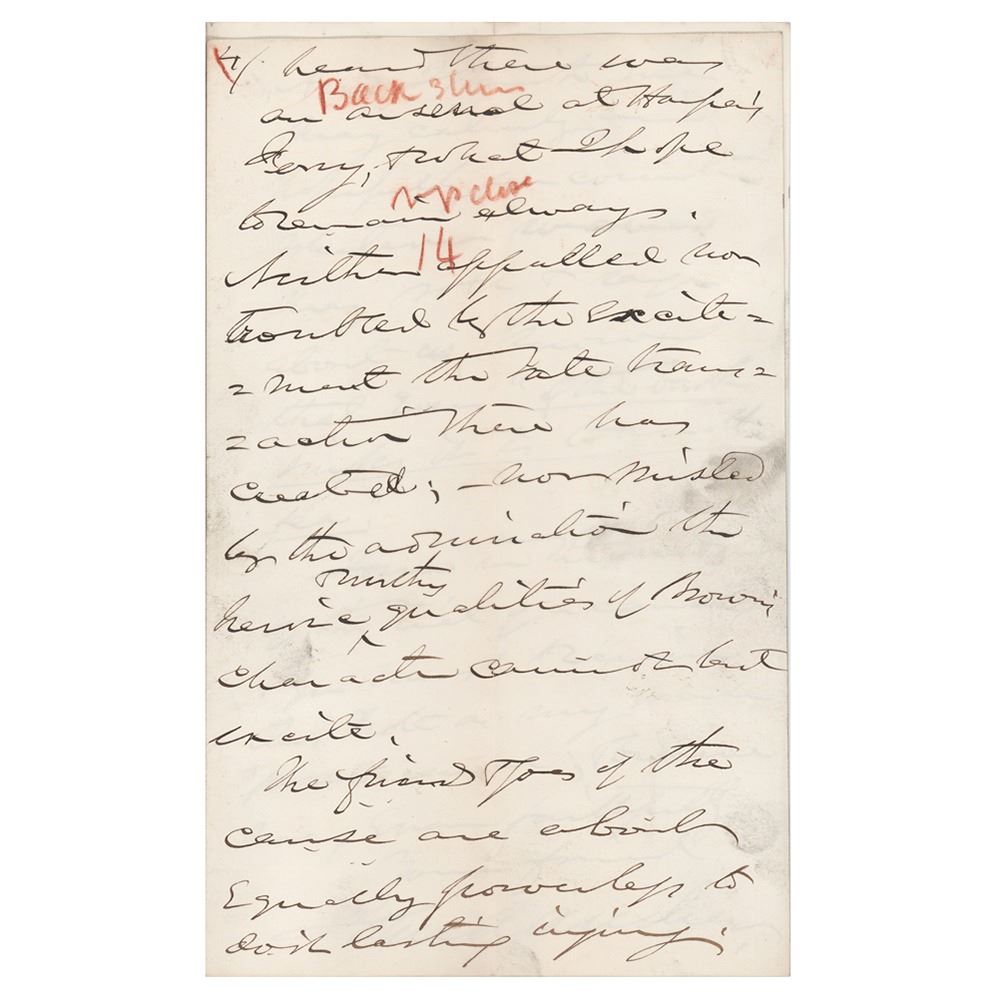 4/ heard there was
Back
an arsenal at Harper's
Ferry, & what I hope
close
to remain always.
14
Neither appalled nor
troubled by the excite=
=ment the late trans=
=action there has
created; – nor misled
by the admiration the
heroic qualities of Brown's
character cannot but
excite.
The friends & foes of the
cause are about
equally powerless to
do it lasting injury.